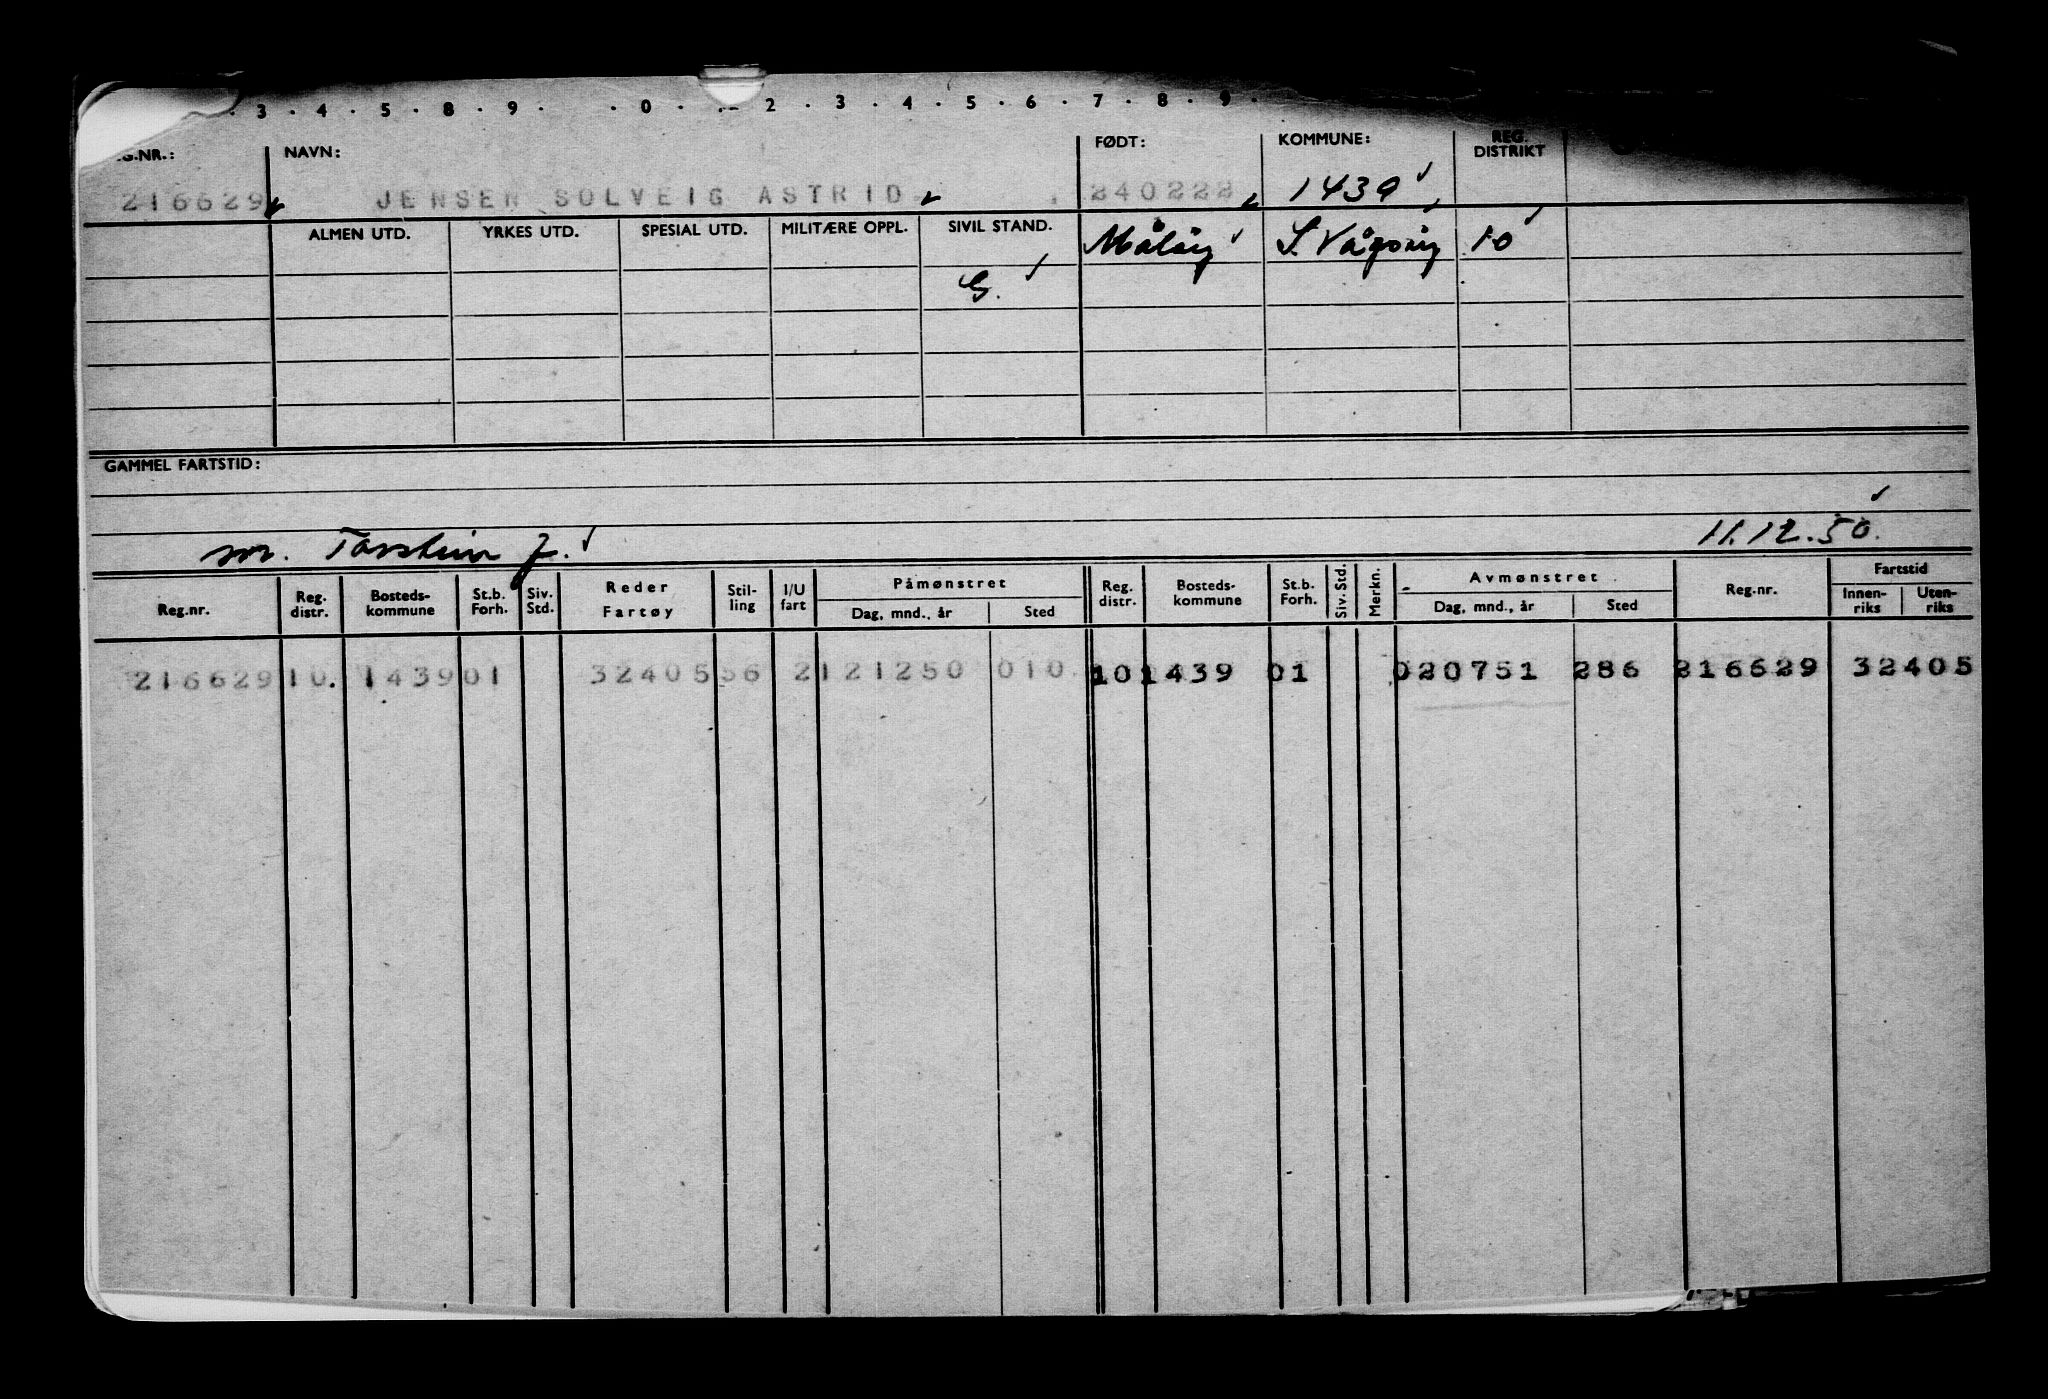 . 3 . 4 . 5 . 8 . 9 . . 0 . . - 2 . 3 . 4 . 5 . 6 . 7 . 8 . 9 .
G.NR.: NAVN: FØDT: KOMMUNE: REG. DISTRIKT
216629 JENSEN SOLVEIG ASTRID 240222 1439
ALMEN UTD. YRKES UTD. SPESIAL UTD. MILITÆRE OPPL. SIVIL STAND. Måløy S. Vågsøy 10
G.
GAMMEL FARTSTID:
mor. Torstein J. 11.12.50.
Reg.nr. Reg. distr. Bosteds- kommune St.b. Forh. Siv. Std. Reder Fartøy Stil- ling I/U fart Påmønstret Dag, mnd., år Sted Reg. distr. Bosteds- kommune St.b. Forh. Siv. Std. Merkn. Avmønstret Dag, mnd., år Sted Reg.nr. Fartstid Innen- riks Uten- riks
216629 10. 1439 01 32405 56 2 121250 010 10 1439 01 020751 286 216629 32405